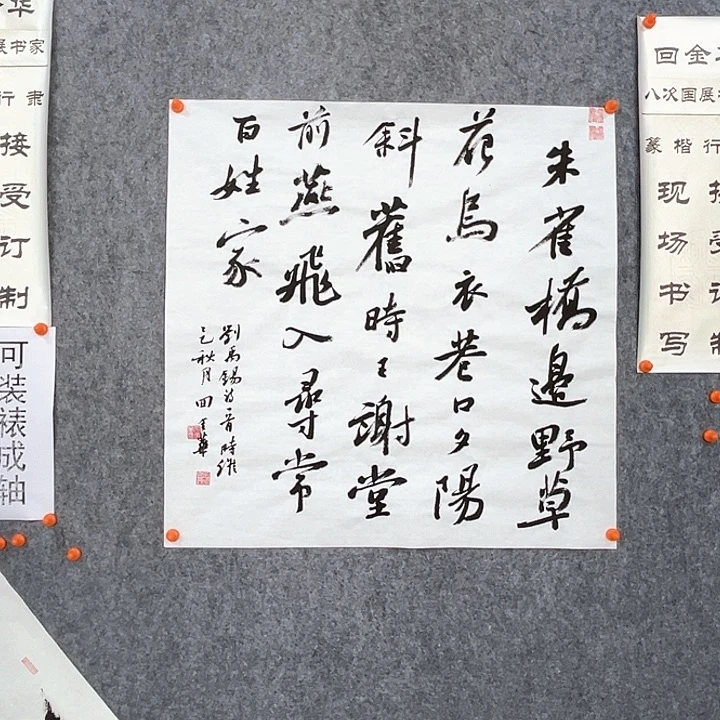 朱雀橋邊野草
花烏衣巷口夕陽
斜舊時王謝堂
前燕飛入尋常
百姓家
劉禹錫詩一首時維
乙巳秋月回金華
回金
八次国展
篆楷行
现场书写
接受订制
华
展书家
行隶
接受订制
可装裱成轴